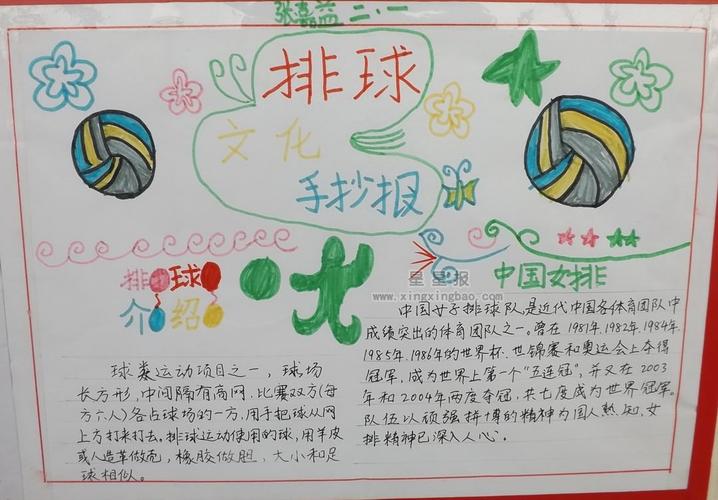 张嘉益 二、一
排球
文化
手抄报
星星报
www.xingxingbao.com
排球
介绍
中国女排
球类运动项目之一，球场
长方形，中间隔有高网，比赛双方(每
方六人)各占球场的一方，用手把球从网
上方打来打去。排球运动使用的球，用羊皮
或人造革做壳，橡胶做胆，大小和足
球相似。
中国女子排球队是近代中国各体育团队中
成绩突出的体育团队之一。曾在1981年、1982年、1984年
1985年、1986年的世界杯、世锦赛和奥运会上夺得
冠军，成为世界上第一个“五连冠”，并又在2003
年和2004年两度夺冠，共七度成为世界冠军。
队伍以顽强拼博的精神为国人熟知，女
排精神已深入人心。